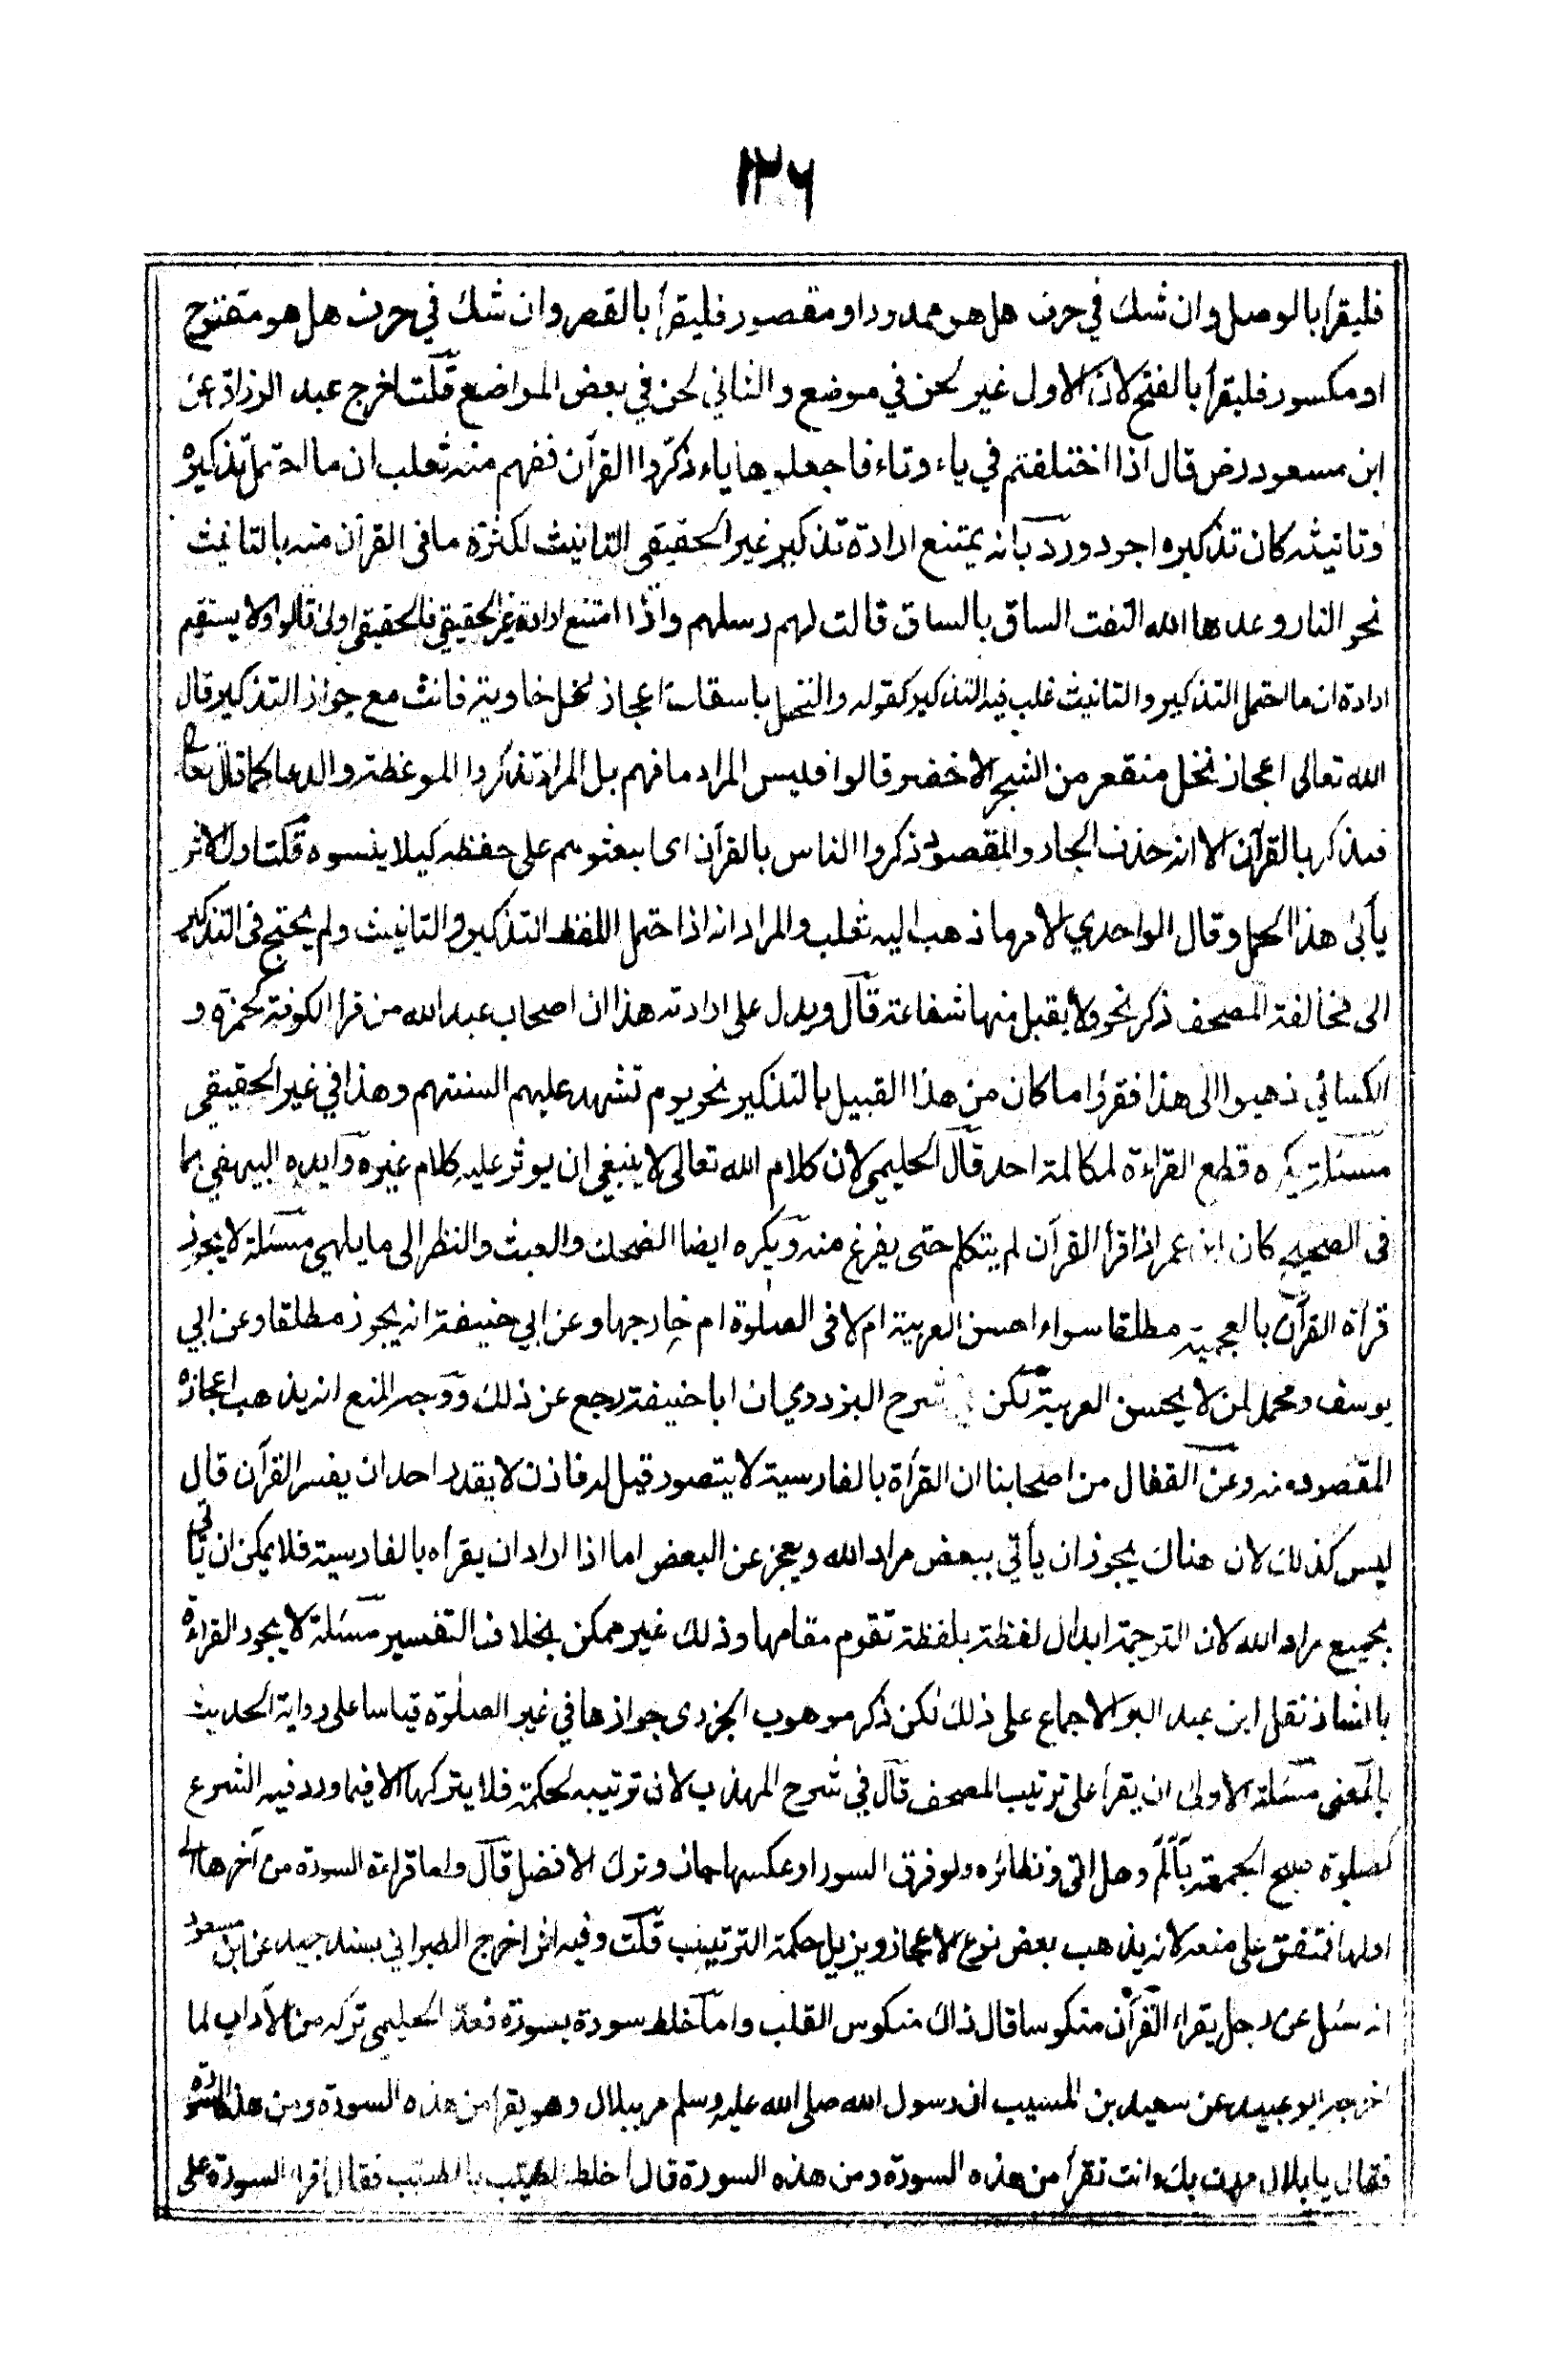 ١٢٦
فليقرأ بالوصل وان شك في حرف هل هو ممدود او مقصور فليقرأ بالقصر وان شك في حرف هل هو مفتوح
او مكسور فليقرأ بالفتح لان الاول غير لحن في موضع والثاني لحن في بعض المواضع قلت اخرج عبد الرزاق عن
ابن مسعود رض قال اذا اختلفتم في ياء وتاء فاجعلوها ياء ذكّروا القرآن ففهم منه ثعلب ان ما احتمل تذكيره
وتانيثه كان تذكيره اجود ورد بانه يمتنع ارادة تذكير غير الحقيقي التانيث لكثرة ما فى القرآن منه بالتانيث
نحو النار وعدها الله التفت الساق بالساق قالت لهم رسلهم واذا امتنع ارادة غير الحقيقي فالحقيقي اولى قالوا ولا يستقيم
ارادة ان ما احتمل التذكير والتانيث غلب فيه التذكير كقوله والنخل باسقات اعجاز نخل خاوية فانث مع جواز التذكير قال
الله تعالى اعجاز نخل منقعر من الشجر الاخضر قالوا فليس المراد ما فهم بل المراد تذكروا الموعظة والدعا كما قال تعالى
فذكر بالقرآن الا انه حذف الجار والمقصود ذكروا الناس بالقرآن اى ابعثوهم على حفظه كيلا ينسوه قلت اول الاثر
يأبى هذا الحمل وقال الواحدي الامر ما ذهب اليه ثعلب والمراد انه اذا احتمل اللفظ التذكير والتانيث ولم يحتج فى التذكير
الى مخالفة المصحف ذكر نحو ولا يقبل منها شفاعة قال ويدل على ارادته هذا ان اصحاب عبد الله من قرا الكوفة كحمزة و
الكسائي ذهبوا الى هذا فقرؤا ما كان من هذا القبيل بالتذكير نحو يوم تشهد عليهم السنتهم وهذا في غير الحقيقي
مسئلة يكره قطع القراءة لمكالمة احد قال الحليمي لان كلام الله تعالى لا ينبغي ان يوثر عليه كلام غيره وايده البيهقي بما
فى الصحيح كان ابن عمر اذا قرأ القرآن لم يتكلم حتى يفرغ منه ويكره ايضا الضحك والعبث والنظر الى ما يلهي مسئلة لا يجوز
قرأة القرآن بالعجمية مطلقا سواء احسن العربية ام لا فى الصلوة ام خارجها وعن ابي حنيفة انه يجوز مطلقا وعن ابي
يوسف ومحمد لمن لا يحسن العربية لكن شرح البزدوي ان ابا حنيفة رجع عن ذلك ووجه المنع انه يذهب اعجازه
المقصود منه وعن القفال من اصحابنا ان القرأة بالفارسية لا يتصور قيل له فاذن لا يقدر احد ان يفسر القرآن قال
ليس كذلك لان هناك يجوز ان يأتي ببعض مراد الله ويعجز عن البعض اما اذا اراد ان يقرأه بالفارسية فلا يمكن ان يأتي
بجميع مراد الله لان الترجمة ابدال لفظة بلفظة تقوم مقامها وذلك غير ممكن بخلاف التفسير مسئلة لا يجوز القراءة
بالشاذ نقل ابن عبد البر الاجماع على ذلك لكن ذكر موهوب الجزرى جوازها في غير الصلوة قياسا على رواية الحديث
بالمعنى مسئلة الاولى ان يقرأ على ترتيب المصحف قال في شرح المهذب لان ترتيبه لحكمة فلا يتركها الا فيما ورد فيه الشرع
كصلوة صبح الجمعة بالم وهل اتى ونظائره ولو فرق السور او عكسها جاز وترك الافضل قال واما قراءة السورة من آخرها الى
اولها فمتفق على منعه لانه يذهب بعض نوع الاعجاز ويزيل حكمة الترتيب قلت وفيه اثر اخرج الطبراني بسند جيد عن ابن مسعود
انه سئل عن رجل يقراء القرآن منكوسا قال ذاك منكوس القلب واما خلط سورة بسورة فعد الحليمي تركه من الآداب لما
اخرجه ابو عبيد عن سعيد بن المسيب ان رسول الله صلى الله عليه وسلم مر ببلال وهو يقرأ من هذه السورة ومن هذه السورة
فقال يا بلال مررت بك وانت تقرأ من هذه السورة ومن هذه السورة قال اخلط الطيب بالطيب فقال اقرا السورة على